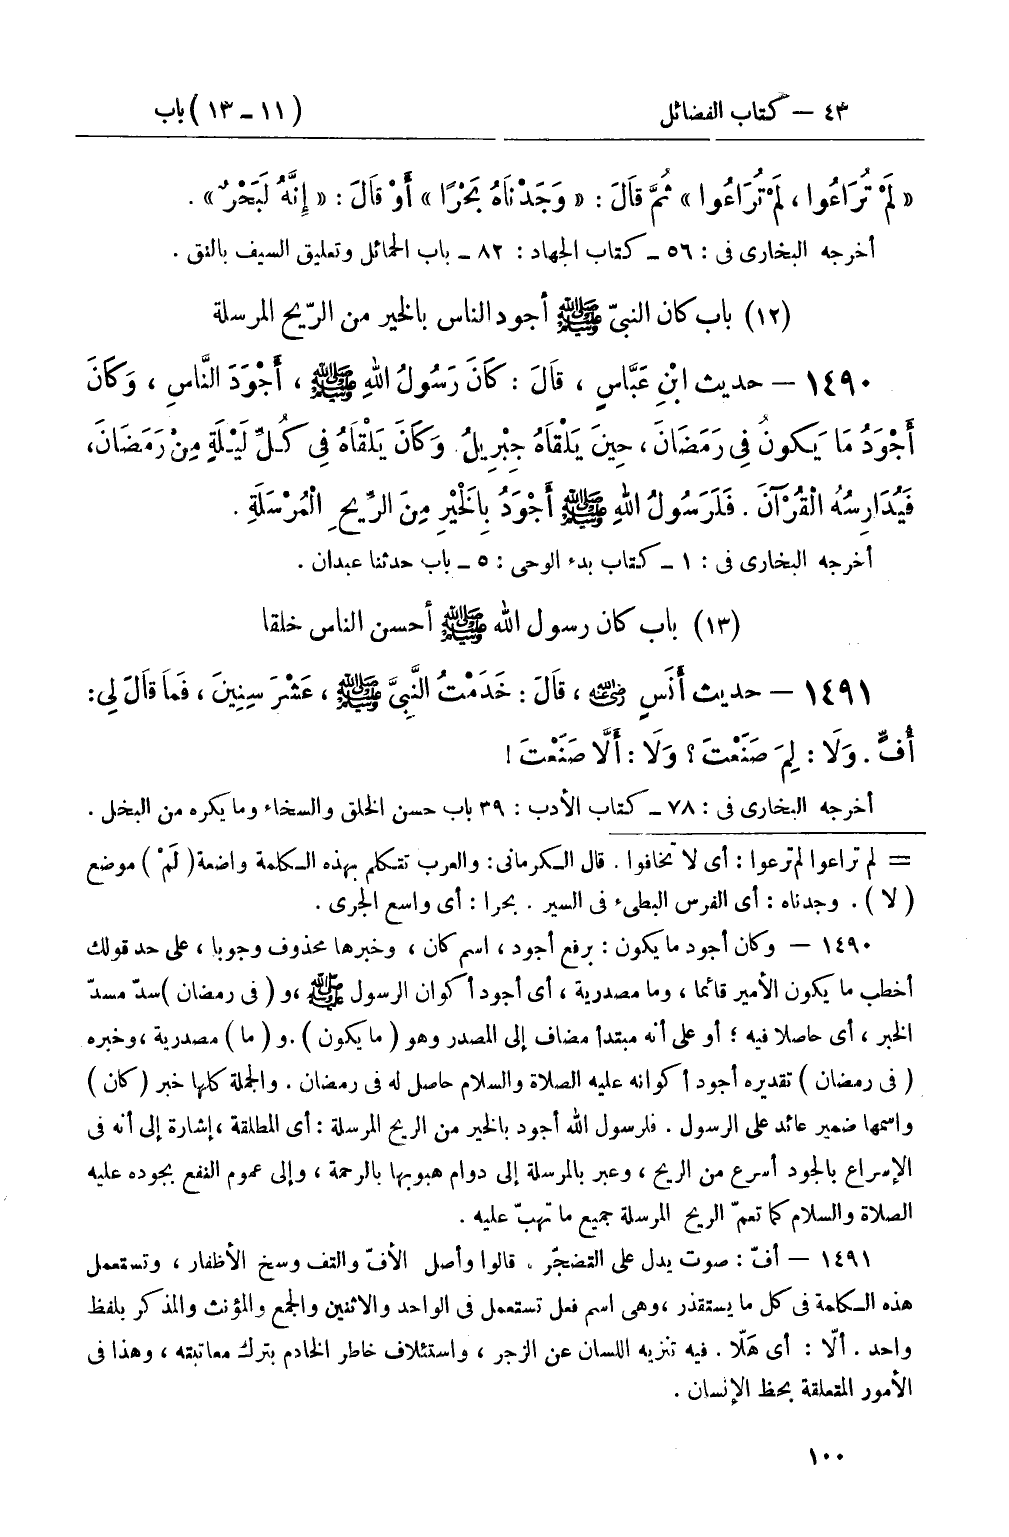 ٤٣ – كتاب الفضائل
(١١ – ١٣) باب
« لَمْ تُرَاعُوا ، لَمْ تُرَاعُوا » ثُمَّ قَالَ : « وَجَدْنَاهُ بَحْرًا » أَوْ قَالَ : « إِنَّهُ لَبَحْرٌ » .
أخرجه البخارى فى : ٥٦ – كتاب الجهاد : ٨٢ – باب الحمائل وتعليق السيف بالعنق .
(١٢) باب كان النبىّ ﷺ أجود الناس بالخير من الرّيح المرسلة
١٤٩٠ – حديث ابْنِ عَبَّاسٍ ، قَالَ : كَانَ رَسُولُ اللهِ ﷺ ، أَجْوَدَ النَّاسِ ، وَكَانَ
أَجْوَدُ مَا يَكُونُ فِى رَمَضَانَ ، حِينَ يَلْقَاهُ جِبْرِيلُ وَكَانَ يَلْقَاهُ فِى كُلِّ لَيْلَةٍ مِنْ رَمَضَانَ،
فَيُدَارِسُهُ الْقُرْآنَ . فَلَرَسُولُ اللهِ ﷺ أَجْوَدُ بِالْخَيْرِ مِنَ الرِّيحِ الْمُرْسَلَةِ .
أخرجه البخارى فى : ١ – كتاب بدء الوحى : ٥ – باب حدثنا عبدان .
(١٣) باب كان رسول الله ﷺ أحسن الناس خلقا
١٤٩١ – حديث أَنَسٍ رضى الله عنه ، قَالَ : خَدَمْتُ النَّبِىَّ ﷺ ، عَشْرَ سِنِينَ ، فَمَا قَالَ لِى:
أُفٍّ . وَلَا : لِمَ صَنَعْتَ ؟ وَلَا : أَلَّا صَنَعْتَ !
أخرجه البخارى فى : ٧٨ – كتاب الأدب : ٣٩ باب حسن الخلق والسخاء وما يكره من البخل .
= لم تراعوا لم ترعوا : أى لا تخافوا . قال الكرمانى: والعرب تتكلم بهذه الكلمة واضعة( لَمْ ) موضع
( لا ) . وجدناه : أى الفرس البطىء فى السير . بحرا : أى واسع الجرى .
١٤٩٠ – وكان أجود ما يكون : برفع أجود ، اسم كان ، وخبرها محذوف وجوبا ، على حد قولك
أخطب ما يكون الأمير قائما ، وما مصدرية ، أى أجود أكوان الرسول ﷺ ،و ( فى رمضان )سدّ مسدّ
الخبر ، أى حاصلا فيه ؛ أو على أنه مبتدأ مضاف إلى المصدر وهو ( ما يكون ) .و ( ما ) مصدرية ،وخبره
( فى رمضان ) تقديره أجود أكوانه عليه الصلاة والسلام حاصل له فى رمضان . والجملة كلها خبر (كان )
واسمها ضمير عائد على الرسول . فلرسول الله أجود بالخير من الريح المرسلة : أى المطلقة ،إشارة إلى أنه فى
الإسراع بالجود أسرع من الريح ، وعبر بالمرسلة إلى دوام هبوبها بالرحمة ، وإلى عموم النفع بجوده عليه
الصلاة والسلام كما تعمّ الريح المرسلة جميع ما تهبّ عليه .
١٤٩١ – أفّ : صوت يدل على التضجّر . قالوا وأصل الأفّ والتف وسخ الأظفار ، وتستعمل
هذه الكلمة فى كل ما يستقذر ،وهى اسم فعل تستعمل فى الواحد والاثنين والجمع والمؤنث والمذكر بلفظ
واحد . ألّا : أى هَلّا . فيه تنزيه اللسان عن الزجر ، واستئلاف خاطر الخادم بترك معاتبته ، وهذا فى
الأمور المتعلقة بحظ الإنسان .
١٠٠